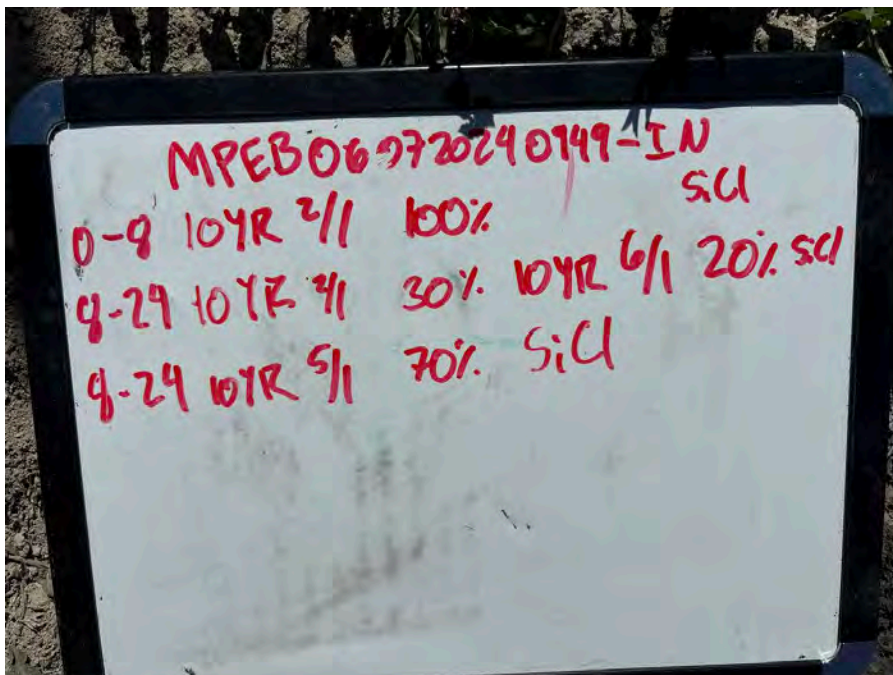 MPEB060720240949-IN
0-8 10YR 2/1 100% SiCl
8-24 10YR 2/1 30% 10YR 6/1 20% SiCl
8-24 10YR 5/1 70% SiCl